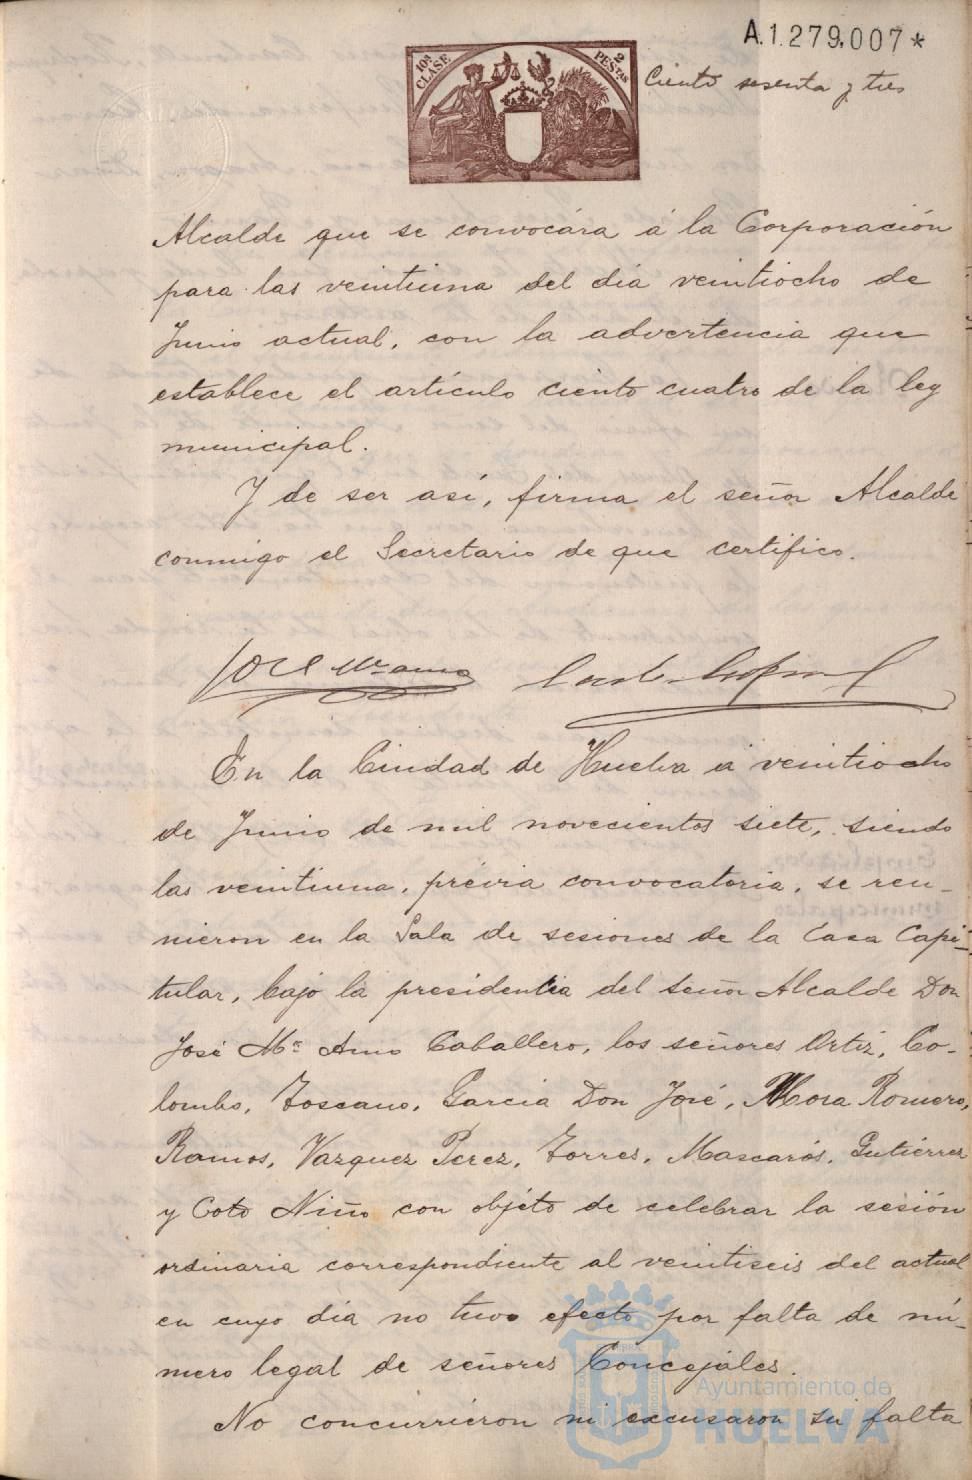 A.1.279.007*
10ª CLASE
2 PEStas
Ciento sesenta y tres
Alcalde que se convocára á la Corporación
para las veintiuna del dia veintiocho de
Junio actual, con la advertencia que
establece el artículo ciento cuatro de la ley
municipal.
Y de ser así, firma el señor Alcalde
conmigo el Secretario de que certifico.
José Mª Amo
En la Ciudad de Huelva á veintiocho
de Junio de mil novecientos siete, siendo
las veintiuna, prévia convocatoria, se reu-
nieron en la Sala de sesiones de la Casa Capi-
tular, bajo la presidencia del señor Alcalde Don
José Mª Amo Caballero, los señores Ortiz, Co-
lombo, Toscano, Garcia Don José, Mora Romero,
Ramos, Vazquez Perez, Torres, Mascarós, Gutiérrez
y Coto Niño con objeto de celebrar la sesión
ordinaria correspondiente al veintiseis del actual
en cuyo dia no tuvo efecto por falta de nú-
mero legal de señores Concejales.
No concurrieron ni excusaron su falta
Ayuntamiento de
HUELVA